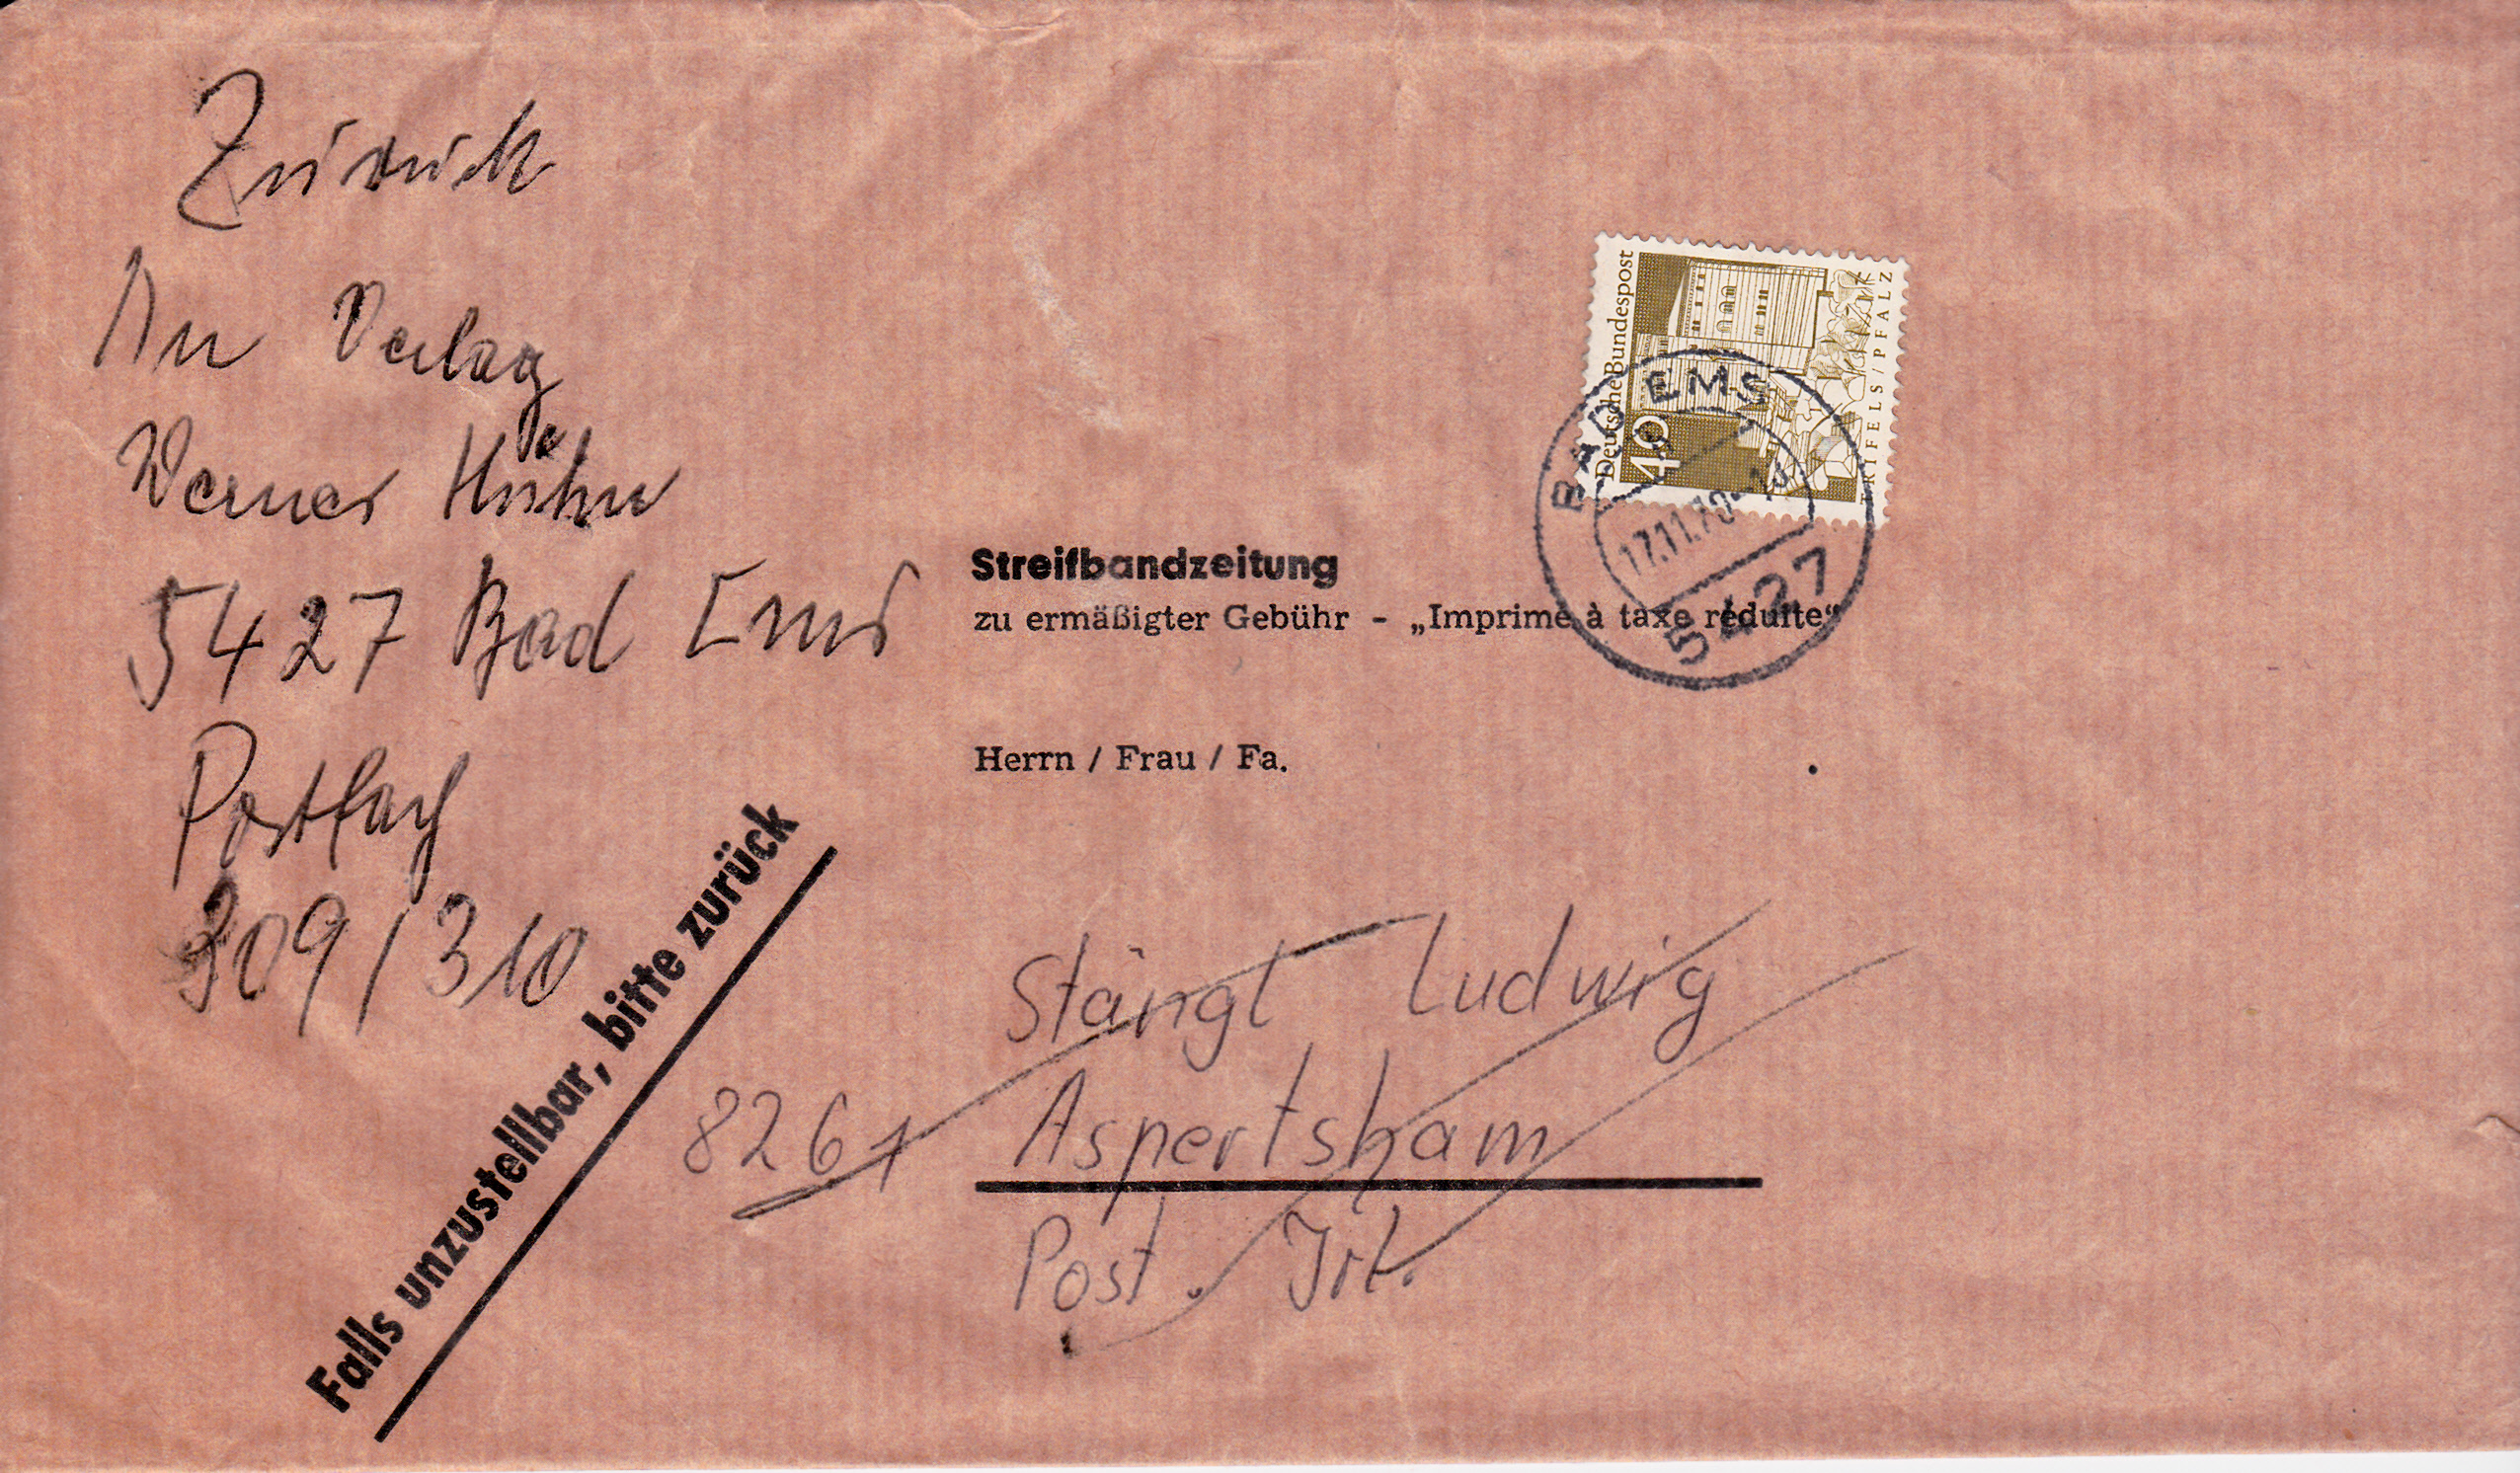 Zurück
An Verlag
Werner Höhn
5427 Bad Ems
Postfach
309/310
Deutsche Bundespost
40
TRIFELS/PFALZ
BAD EMS
17.11.70
5427
Streifbandzeitung
zu ermäßigter Gebühr - „Imprimé à taxe réduite“
Herrn / Frau / Fa.
Falls unzustellbar, bitte zurück
Stängl Ludwig
8261 Aspertsham
Post. Irl.